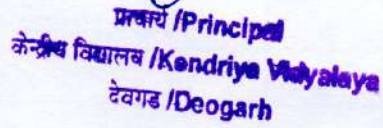 प्राचार्य /Principal
केन्द्रीय विद्यालय /Kendriya Vidyalaya
देवगड /Deogarh